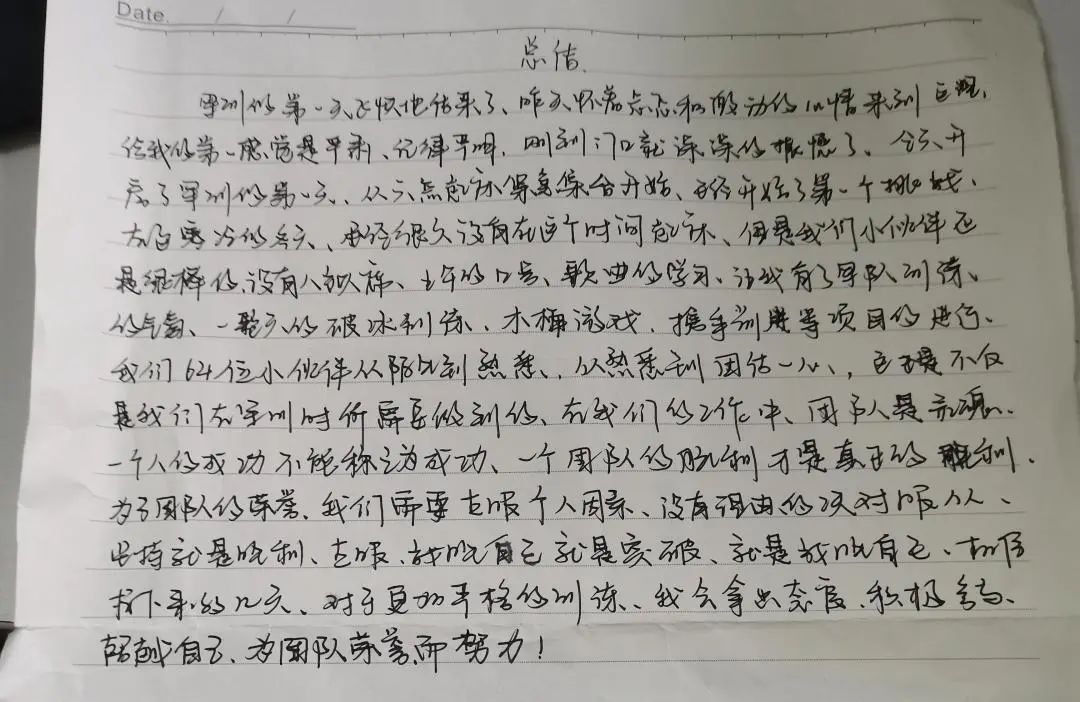 Date / /
总结.
军训的第一天飞快地结束了、昨天怀着忐忑和激动的心情来到
给我的第一感觉是严肃、纪律严明，刚到门口就深深的振憾了、今天开
启了军训的第一天、从六点起床紧急集合开始、已经开始了第一个挑战、
在这寒冷的冬天、已经很久没有在这个时间起床、但是我们小伙伴还
是坚持的，没有人缺席、上午的口号、歌曲的学习、让我有了军队训练、
的气氛、一整天的破冰训练、木桶游戏，携手前进等项目的进行、
我们64位小伙伴从陌生到熟悉、，从熟悉到团结一心、，这不仅
是我们在军训时所需要做到的、在我们的工作中、团队是灵魂、
一个人的成功不能称之为成功、一个团队的胜利才是真正的胜利．
为了团队的荣誉，我们需要克服个人因素、没有理由的绝对服从、
坚持就是胜利、克服、战胜自己就是突破、就是战胜自己、相信
接下来的几天、对于更加严格的训练、我会拿出态度，积极参与、
超越自己、为团队荣誉而努力！